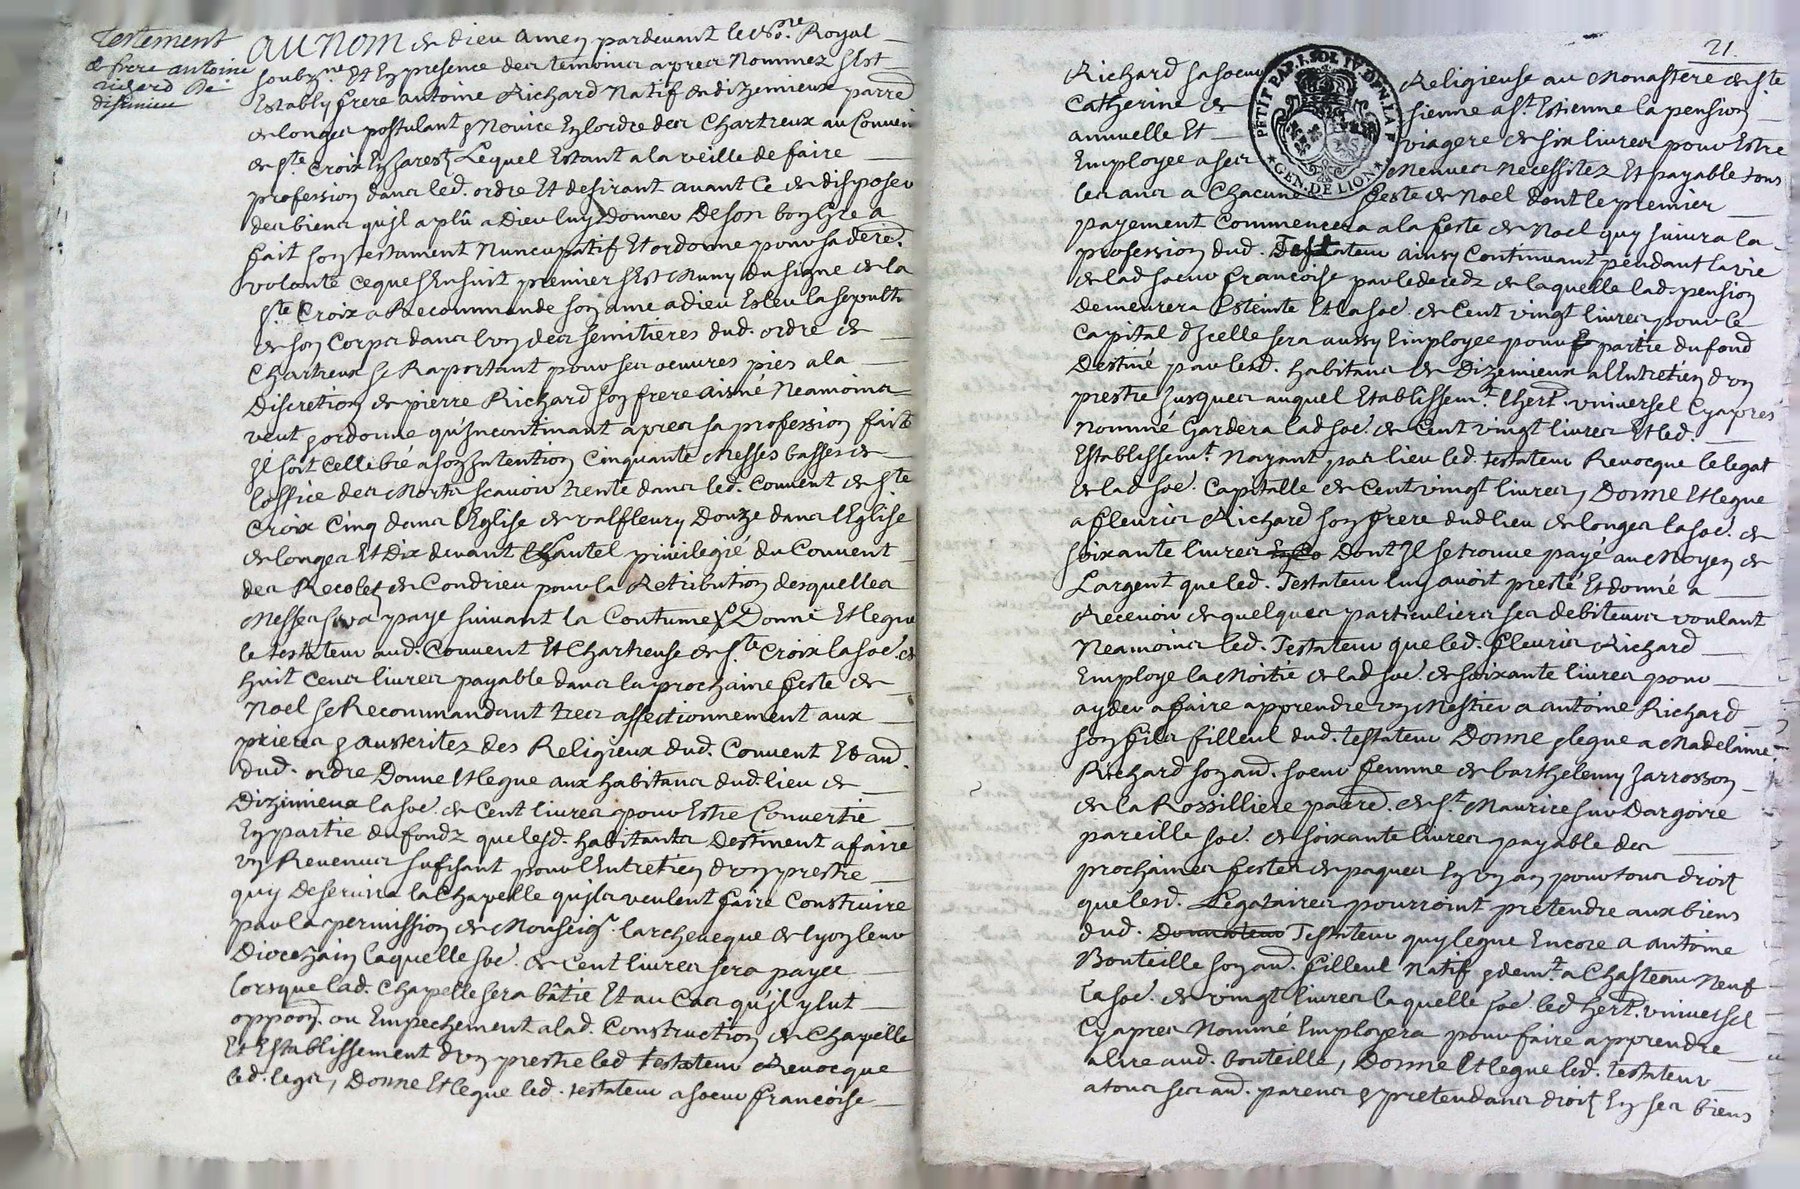 Testement
de frere antoine
richard de
disimieu
AU NOM de dieu amen pardevant le No.re Royal
soubz.ne Et En presence des temoins apres Nommez s'Est
Estably frere antoine Richard Natif de dizemieux parre
de longes postulant & Novice En lordre des Chartreux au Convent
de s.te Croix En Jarest Lequel Estant a la veille de faire
profession dans led. ordre Et desirant avant Ce de disposer
des biens qu'Jl a plû a Dieu luy donner De son bon gre a
fait son testament Nuncupatif Et ordonne pour sa dere.
volonte Ce que s'Ensuit premier s'Est Muny du signe de la
s.te Croix a Recommande son ame a dieu Esleu la sepult.
de son Corps dans l'un des semitieres dud. ordre de
Chartreux se Raportant pour ses oeuvres pies a la
Discretion de pierre Richard son frere aisné Neamoins
veut & ordonne qu'Incontinant apres sa profession faite
Jl soit Cellebré a son Intention Cinquante Messes basses de
l'office des Morts scavoir trente dans led. Convent de s.te
Croix Cinq dans l'Eglise de valfleury Douze dans l'Eglise
de longes Et Dix devant L'autel privilegié du Convent
des Recolet de Condrieu pour la Retribution desquelles
Messes sera payé suivant la Coutume Donne Et legue
le testateur aud. Convent Et Chartreuse de s.te Croix la soe. de
huit cens livres payable dans la prochaine feste de
Noel se Recommandant tres affectionnement aux
prieres & austerites des Religieux dud. Convent Et au.
dud. ordre Donne Et legue aux habitans dud. lieu de
Dizimieux la soe. de Cent livres pour Estre Convertie
En partie du fondz que lesd. habitants Destinent a faire
un Revenus sufisant pour l'Entretien d'un prestre
quy Deservira la Chapelle qu'Jls veulent faire Construire
par la permission de Monseig.r larcheveque de lyon leur
Diocezain laquelle soe. de Cent livres sera payee
lorsque lad. Chapelle sera bâtie Et au Cas qu'Jl y Eut
oppoon. ou Empechement a lad. Construction de Chapelle
Et Establissement d'un prestre led. testateur Revocque
led. legs, Donne Et legue led. testateur a soeur francoise
21.
Richard sa soeur Religieuse au Monastere de s.te
Catherine de sienne a s.t Estienne la pension
annuelle Et viagere de six livres pour Estre
Employee a ses Menues Necessitez Et payable tous
les ans a Chacune feste de Noel dont le premier
payement Commencera a la feste de Noel quy suivra la
profession dud. Testateur ainsy Continuant pendant la vie
de lad. soeur francoise par le decedz de laquelle lad. pension
demeurera Esteinte Et la soe. de Cent vingt livres pour le
Capital d'Jcelle sera aussy Employee pour partie du fond
Destiné par lesd. habitans de Dizemieux a l'Entretien d'un
prestre Jusques auquel Etablissem.t l'hert. universel Cyapres
Nommé Gardera lad. soe. de Cent vingt livres Et led.
Establissem.t Nayant pas lieu led. testateur Revocque le legat
de lad. soe. Capitalle de Cent vingt livres, Donne Et legue
a fleuris Richard son frere dud. lieu de longes la soe. de
soixante livres Dont Jl se trouve payé au Moyen de
L'argent que led. Testateur luy avoit presté Et donné a
Recevoir de quelques particuliers ses debiteurs voulant
Neamoins led. Testateur que led. fleuris Richard
Employe la Moitié de lad. soe. de soixante livres pour
ayder a faire apprendre un Mestier a antoine Richard
son fils filleul dud. testateur Donne & legue a Madelaine
Richard son au. soeur femme de barthelemy Jarrosson
de la Rossilliere parre. de s.t Maurice sur Dargoire
pareille soe. de soixante livres payable des
prochaines festes de paques En un an pour tous droit
que lesd. Legataires pourroint pretendre aux biens
dud. Donnateur Testateur quy legue Encore a antoine
Bouteille son au. filleul Natif & dem.t a Chasteau Neuf
la soe. de vingt livres laquelle soe. led. hert. universel
Cyapres Nommé Employera pour faire apprendre
a lire aud. bouteille, Donne Et legue led. testateur
a tous ses au. parens & pretendans droit En ses biens
PETIT PAP. F. SOL IV. DEN. LA F.
GEN. DE LION